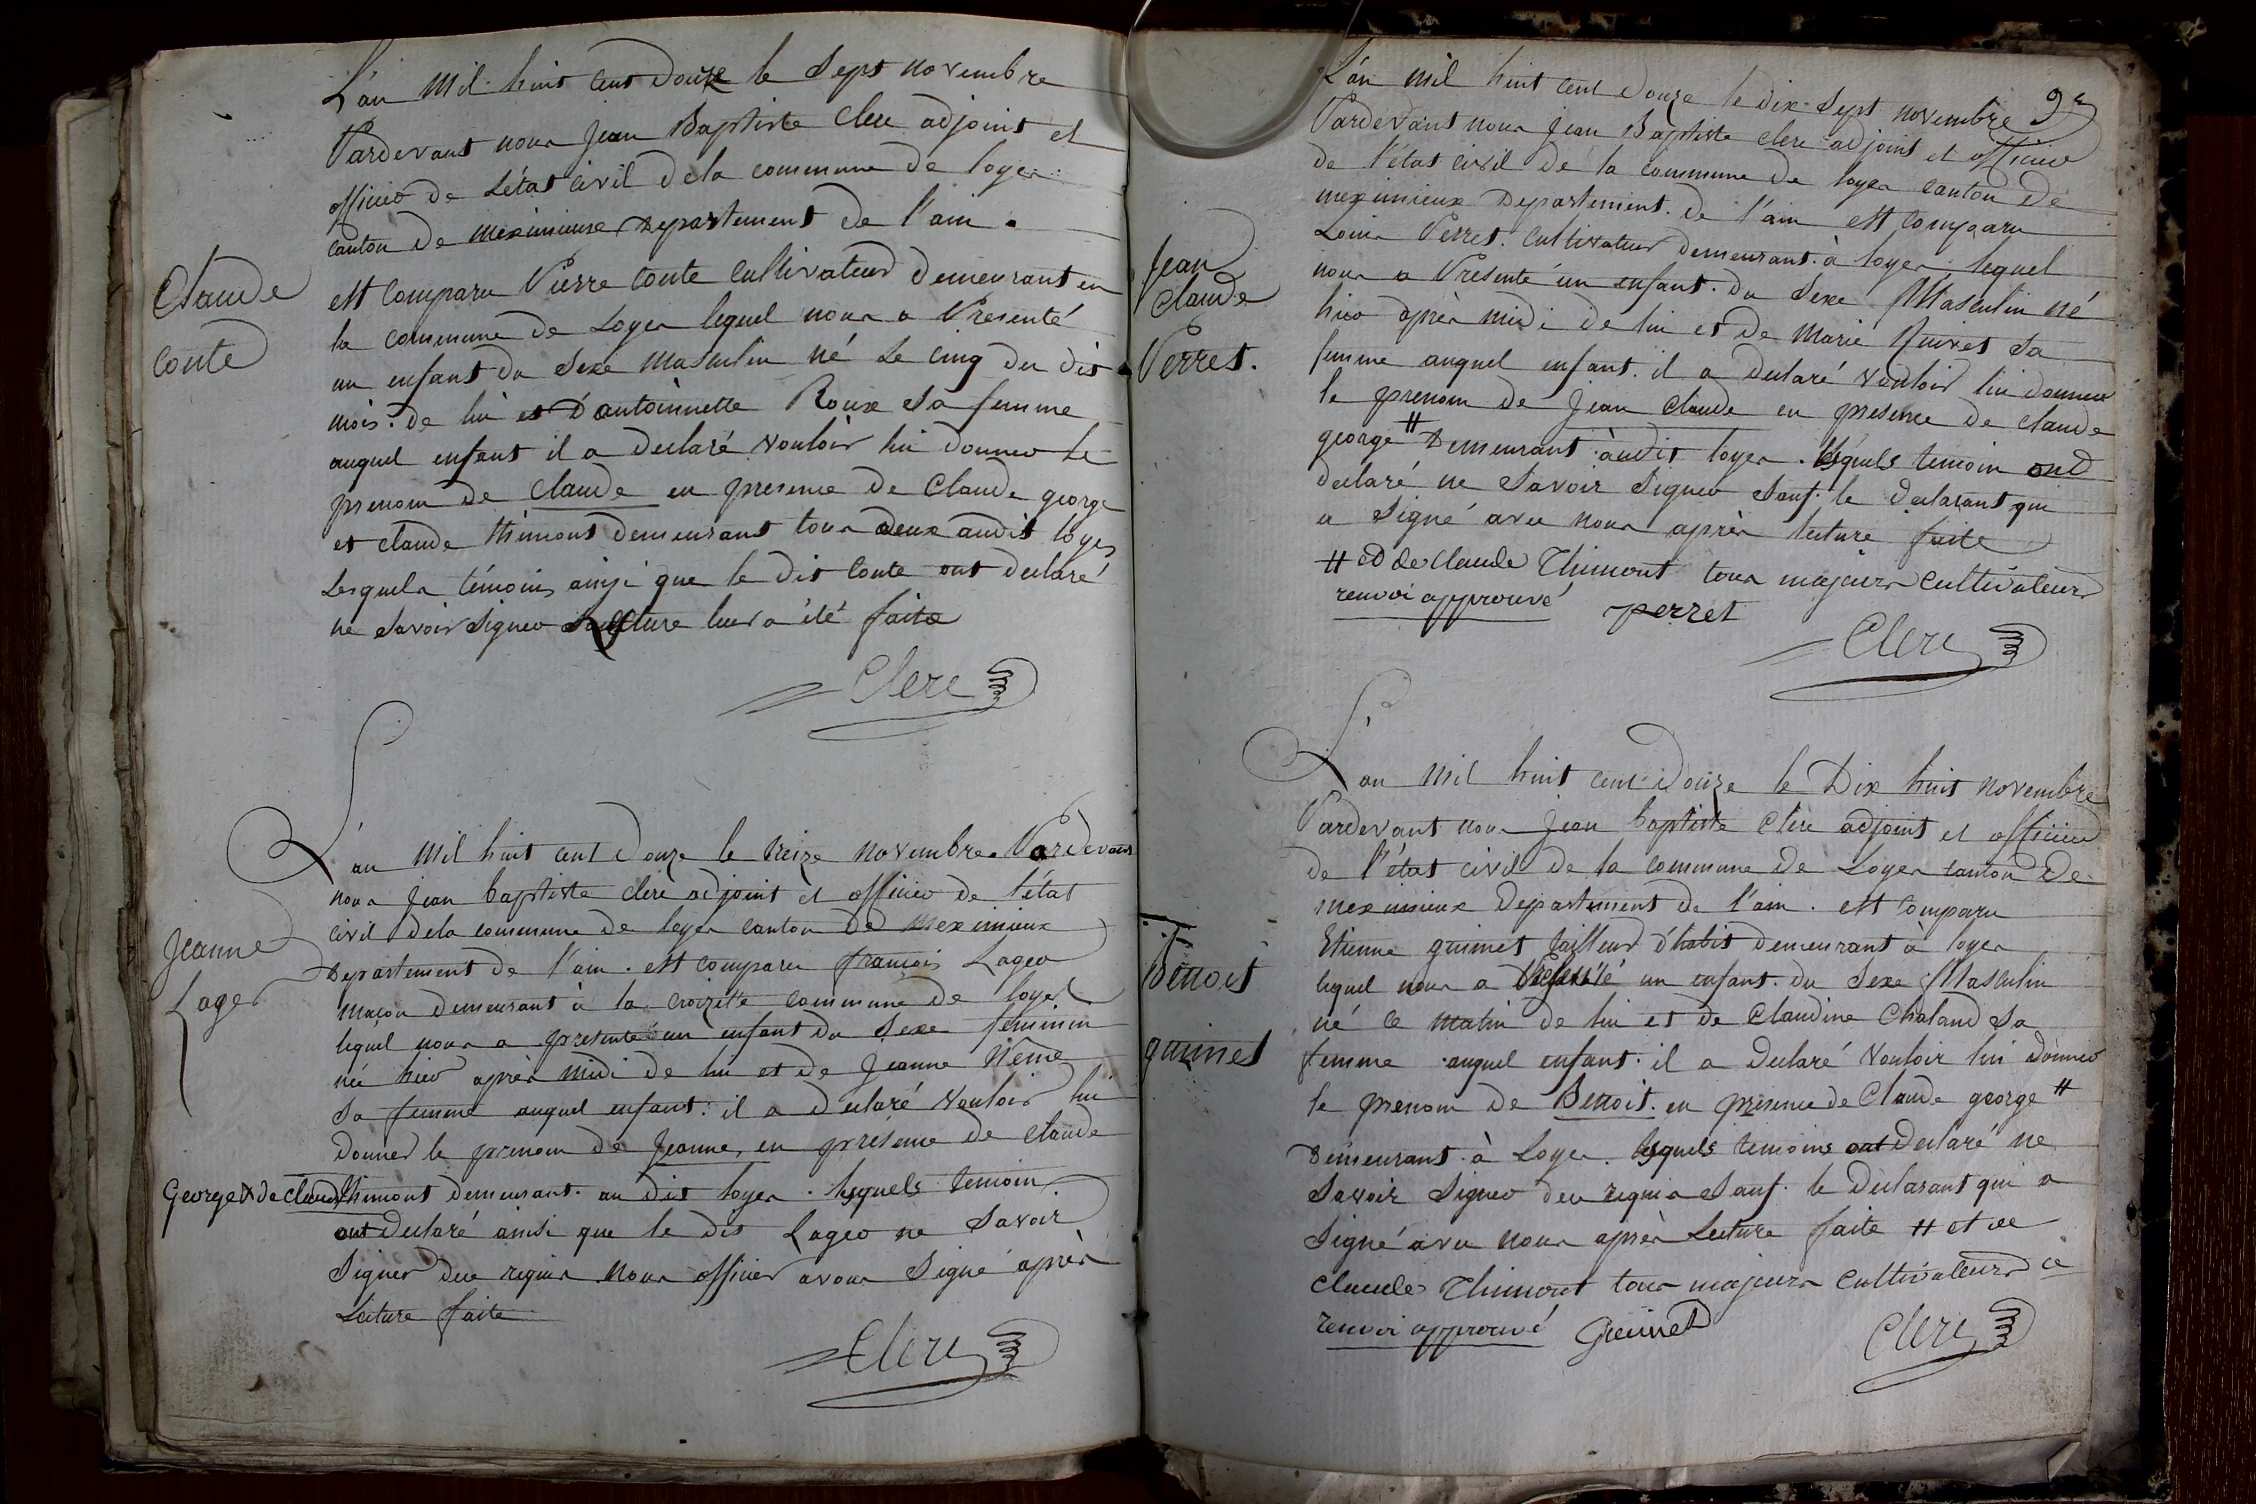 L'an mil huit cent douze le sept novembre
Pardevant nous Jean Baptiste Clere adjoint et
officier de l'état civil dela commune de loyes
canton de meximieux departement de l'ain.
Claude
Conte
est comparu Pierre Conte cultivateur demeurant en
la commune de Loyes lequel nous a Presenté
un enfant du sexe masculin né le cinq du dit
mois. de lui et d'antoinette Roux sa femme
auquel enfant il a declaré vouloir lui donner le
prenom de claude en presence de Claude george
et claude thimont demeurant tous deux audit loyes
Lesquels témoins ainsi que le dit Conte ont declaré
ne savoir signer lecture leur a été faite
Clere
L'an mil huit cent douze le treize novembre. Pardevant
nous Jean baptiste clere adjoint et officier de l'état
civil dela commune de loyes canton de meximieux
Jeanne
Lager
Departement de l'ain. est comparu francois Lager
macon demeurant à la croizette commune de loyes
lequel nous a presenté un enfant du sexe feminin
née hier après midi de lui et de Jeanne
sa femme auquel enfant. il a declaré vouloir lui
donner le prenom de Jeanne, en présence de claude
George & de claude thimont demeurant. au dit loyes. lesquels temoin
ont declaré ainsi que le dit Lager ne savoir
signer de requis nous officier avons signé après
Lecture faite
Clere
L'an mil huit cent douze le dix-sept novembre
Pardevant nous Jean Baptiste clere adjoint et officier
de l'état civil de la commune de loyes canton de
meximieux Departement. de l'ain est comparu
Louis Perret. cultivateur demeurant à loyes lequel
Jean
Claude
Perret.
nous a Presenté un enfant. du sexe Masculin né
hier après midi de lui et de Marie Guinet sa
femme auquel enfant. il a declaré vouloir lui donner
le prenom de Jean Claude en presence de claude
george # demeurant audit loyes. lesquels temoin ont
declaré ne savoir signer sauf. le declarant qui
a signé avec nous après lecture faite
# et de claude Thimont tous majeurs cultivateurs
renvoi approuvé perret
Clere
L'an mil huit cent douze le Dix huit novembre
Pardevant nous Jean baptiste Clere adjoint et officier
de l'état civil de la commune de Loyes canton de
meximieux Departement de l'ain. est comparu
Etienne guinet tailleur d'habit demeurant à loyes
Benoit
guinet
lequel nous a Presenté un enfant. du sexe Masculin
né ce matin de lui et de Claudine Chaland sa
femme auquel enfant. il a declaré vouloir lui donner
le prenom de Benoit. en présence de Claude george #
demeurant. à Loyes. lesquels temoins ont declaré ne
savoir signer de requis sauf. le declarant qui a
signé avec nous après Lecture faite # et de
claude Thimont tous majeurs cultivateurs ce
renvoi approuvé Guinet
Clere